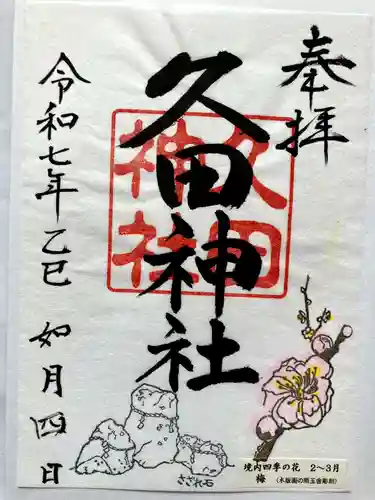 奉拝
久田神社
久田
神社
令和七年乙巳 如月四日
さざれ石
境内四季の花 2〜3月
梅 (木版画の照玉舎彫刻)